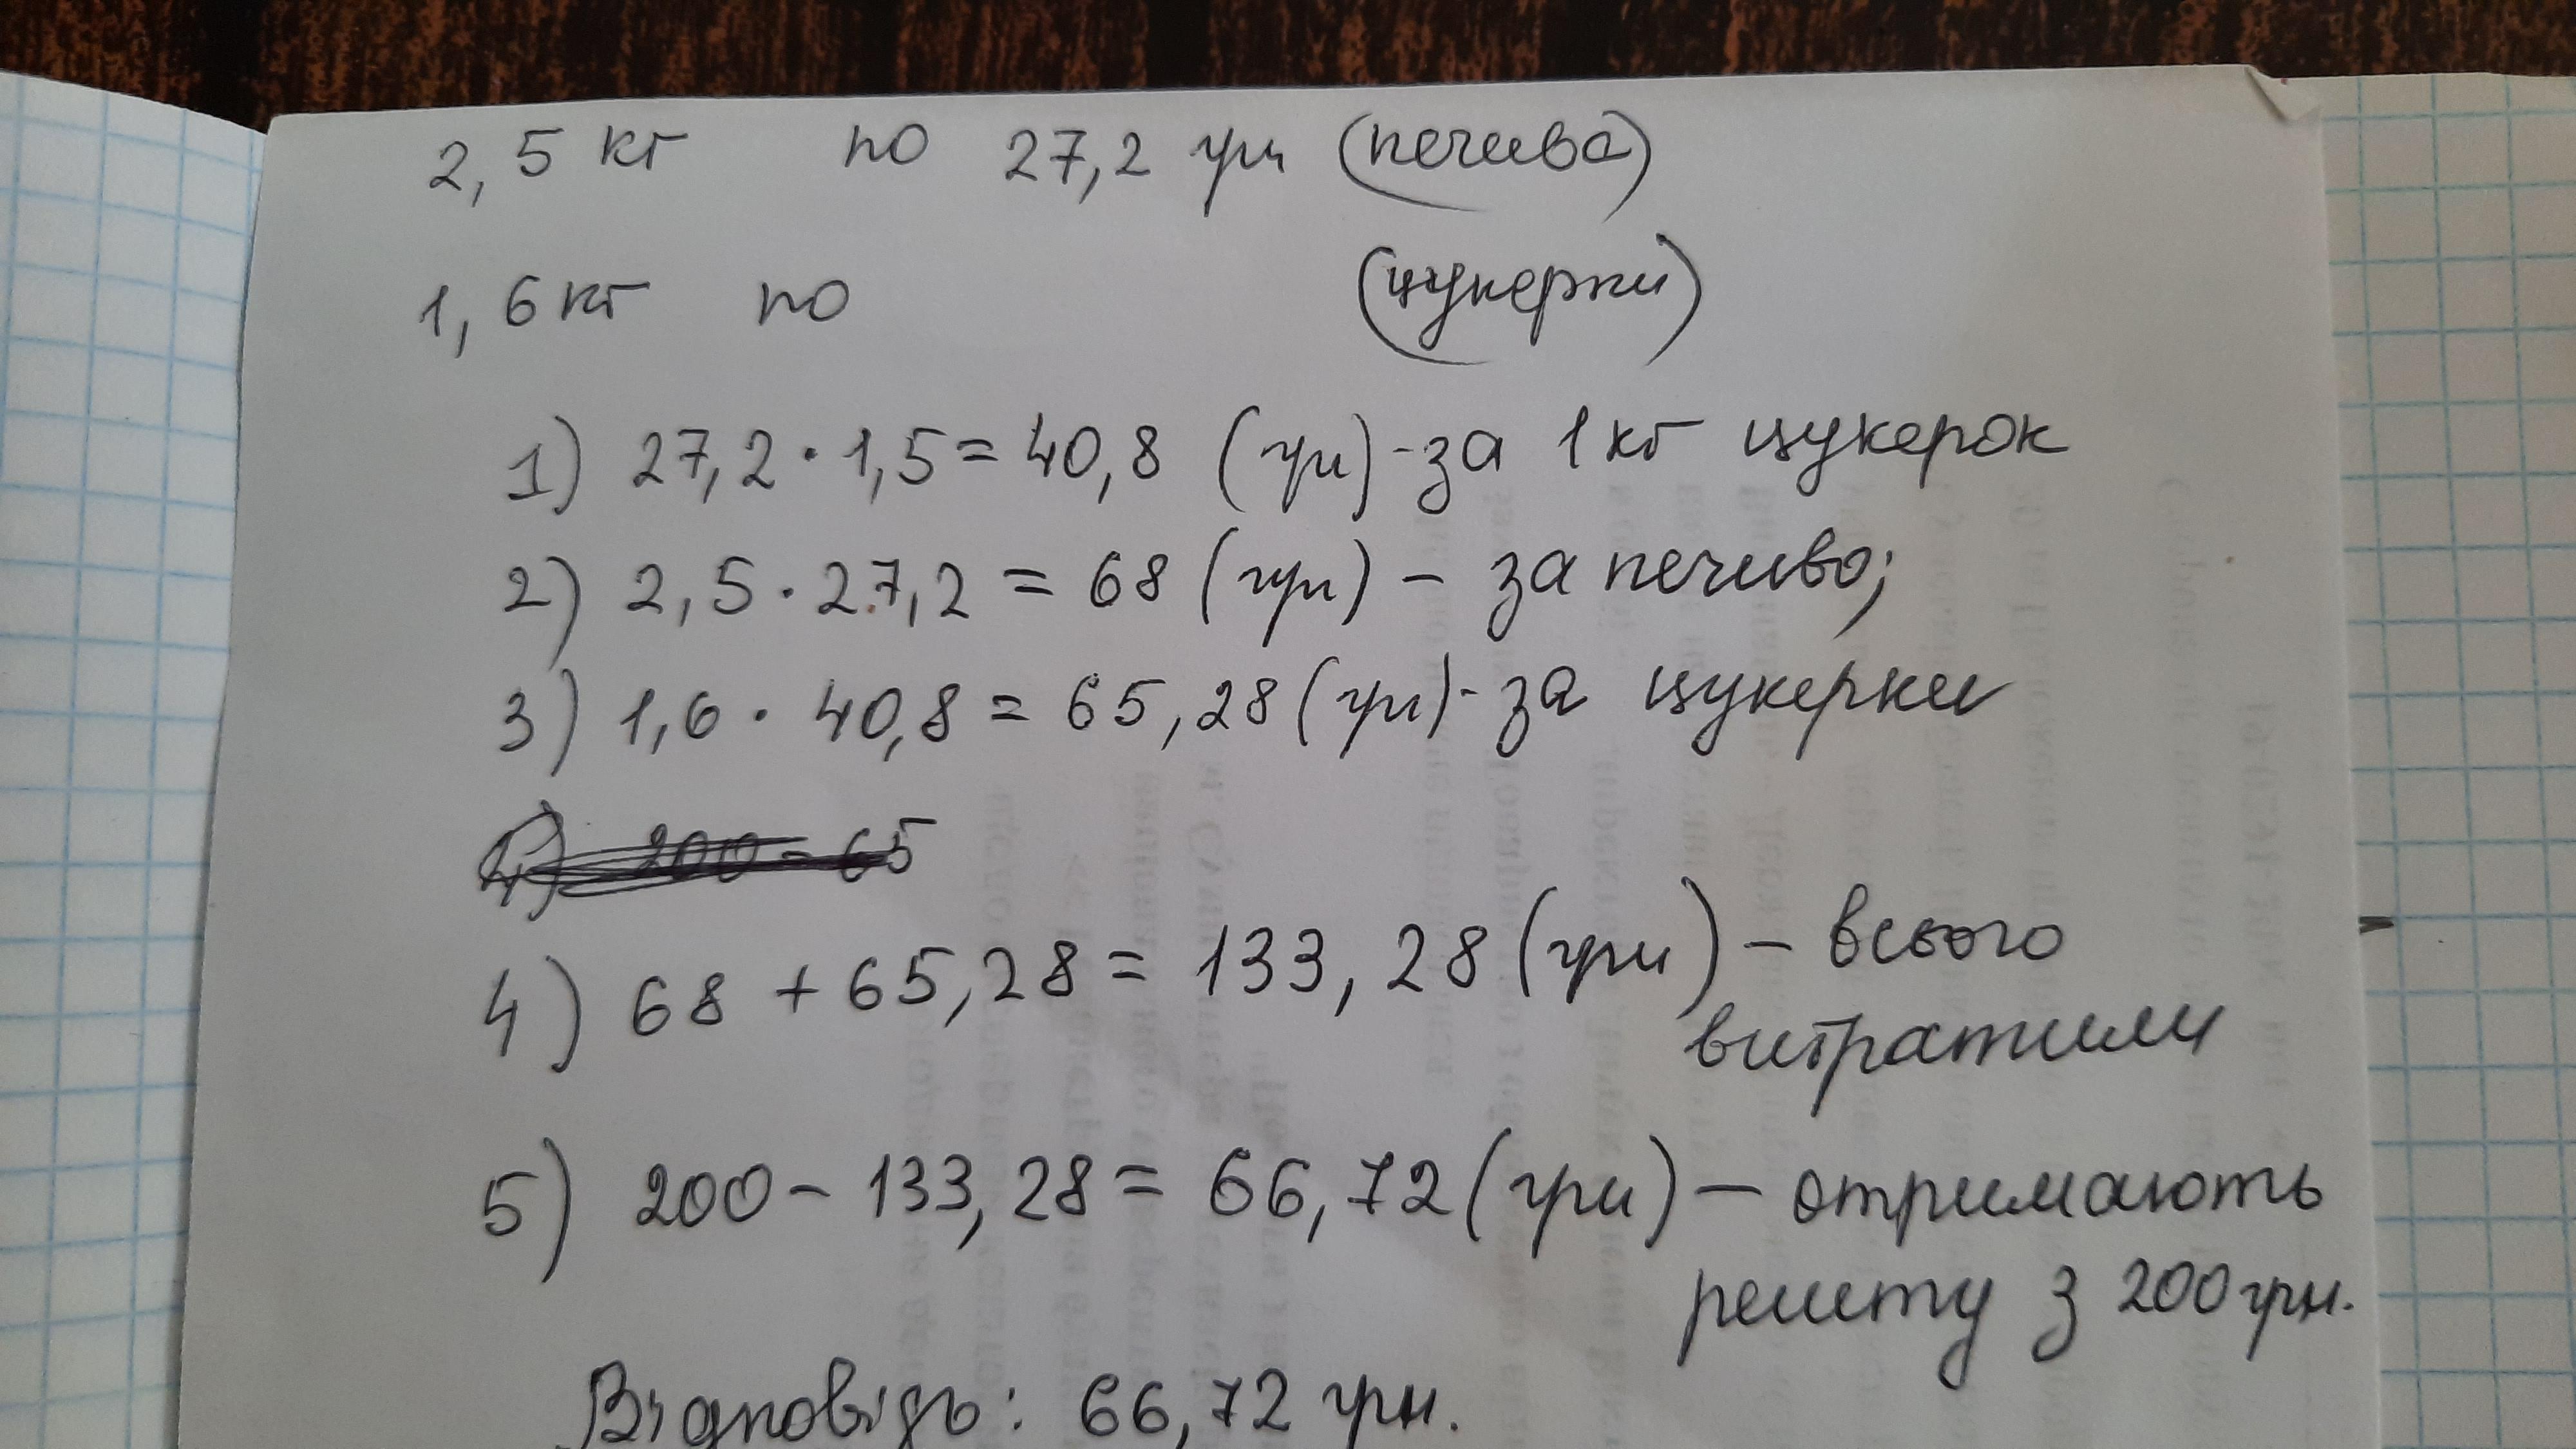 2,5 кг по 27,2 грн (печива)
1,6 кг по (цукерки)
1) 27,2 · 1,5 = 40,8 (грн) - за 1 кг цукерок
2) 2,5 · 27,2 = 68 (грн) – за печиво;
3) 1,6 · 40,8 = 65,28 (грн) - за цукерки
4) 200 - 65
4) 68 + 65,28 = 133,28 (грн) – всього
витратили
5) 200 – 133,28 = 66,72 (грн) – отримають
решту з 200 грн.
Відповідь: 66,72 грн.